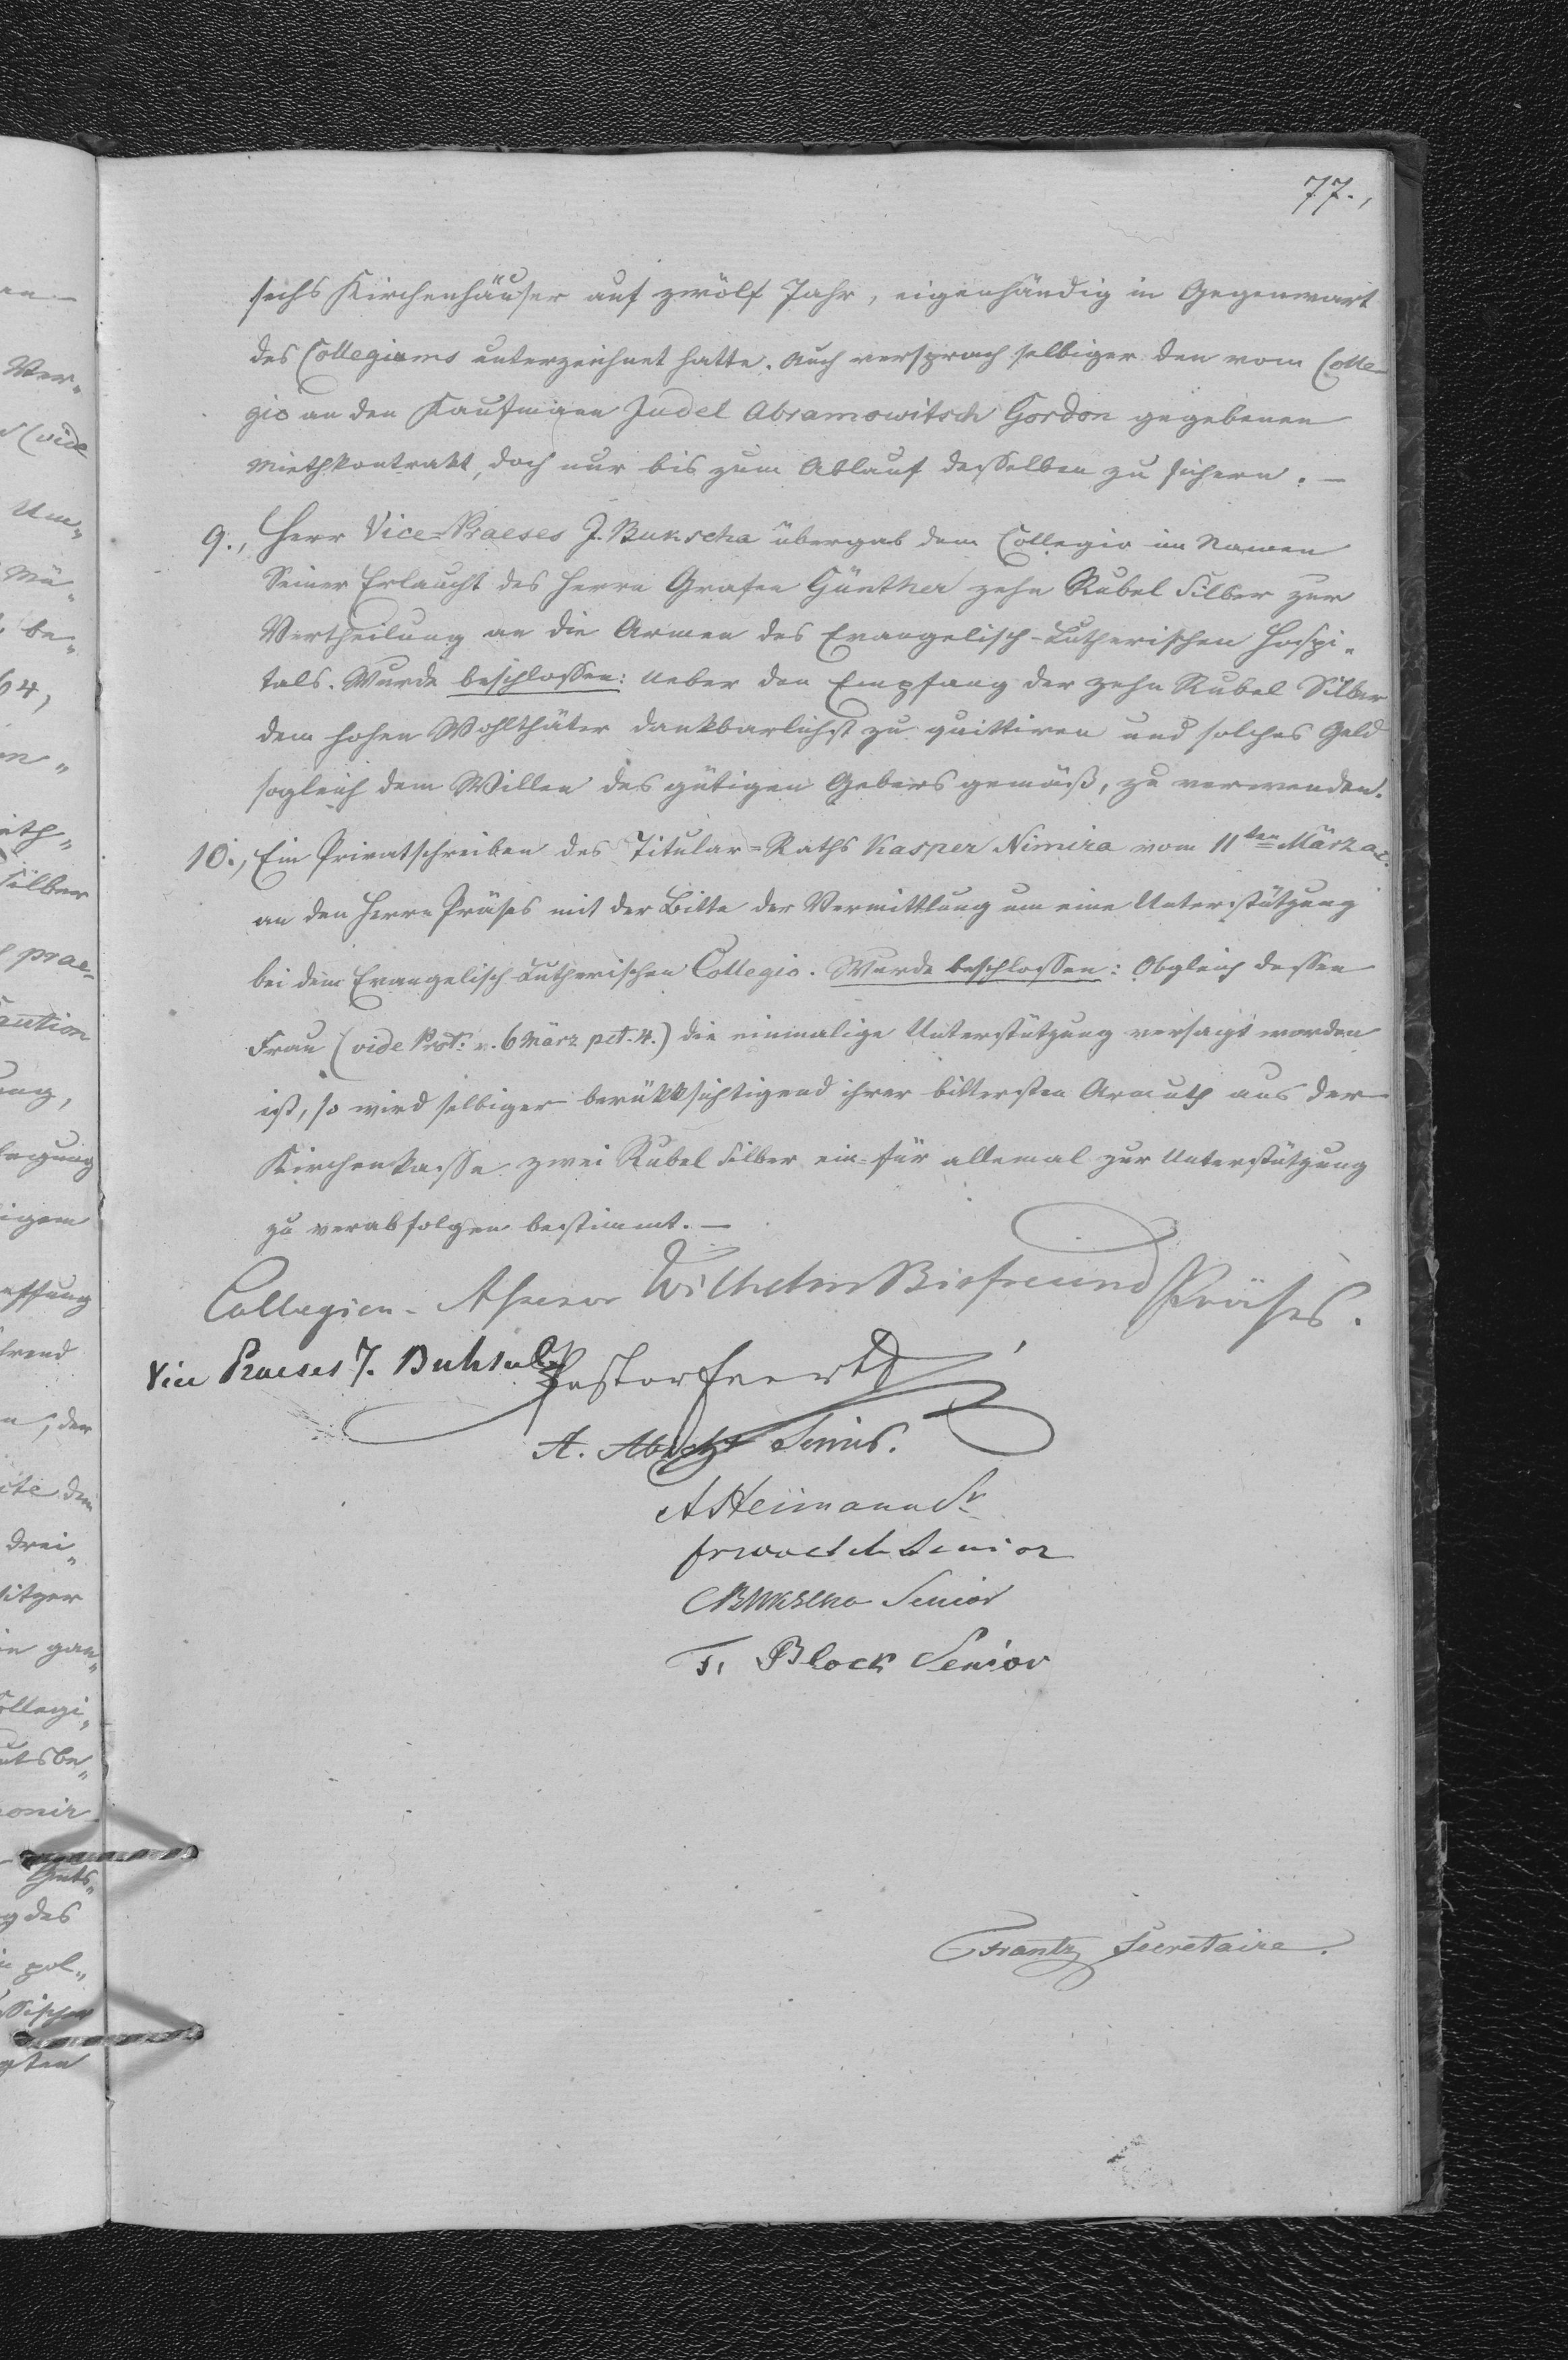 77.,
sechs Kirchenhäuser auf zwölf Jahr, eigenhändig in Gegenwart
des Collegiums unterzeichnet hatte. Auch versprach selbiger den vom Colle-
gio an den Kaufmann Judel Abramowitsch Gordon gegebenen
Miethkontrakt, doch nur bis zum Ablauf desselben zu sichern. –
9., Herr Vice-Praeses J. Bukscha übergab dem Collegio im Namen
Seiner Erlaucht des Herrn Grafen Günther zehn Rubel Silber zur
Vertheilung an die Armen des Evangelisch-Lutherischen Hospi-
tals. Wurde beschlossen: Ueber den Empfang der zehn Rubel Silber
dem hohen Wohlthäter dankbarlichst zu quittiren und solches Geld
sogleich dem Willen des gütigen Gebers gemäß, zu verwenden.
10., Ein Privatschreiben des Titular-Raths Kasper Nimira vom 11ten März a.c.
an den Herrn Präses mit der Bitte der Vermittlung um eine Unterstützung
bei dem Evangelisch-Lutherischen Collegio. Wurde beschlossen: Obgleich dessen
Frau (vide Prot: v. 6 März pct. 4.) die einmalige Unterstützung versagt worden
ist, so wird selbiger berükksichtigend ihrer bittersten Armuth aus der
Kirchenkasse zwei Rubel Silber ein-für allemal zur Unterstützung
zu verabfolgen bestimmt. –
Collegien-Assessor Wilhelm Bisfreund Präses.
Vice Praeses J. Buksch
Pastor
A. Senior.
A Heimann Sr
Senior
Bukscha Senior
F. Block Senior
Frantz Secretaire.
Ver-
(vide
Um-
Mü-
be-
64,
Silber
prae-
Caution
ung,
drei-
gan-
Collegi-
Guts-
des
pol-